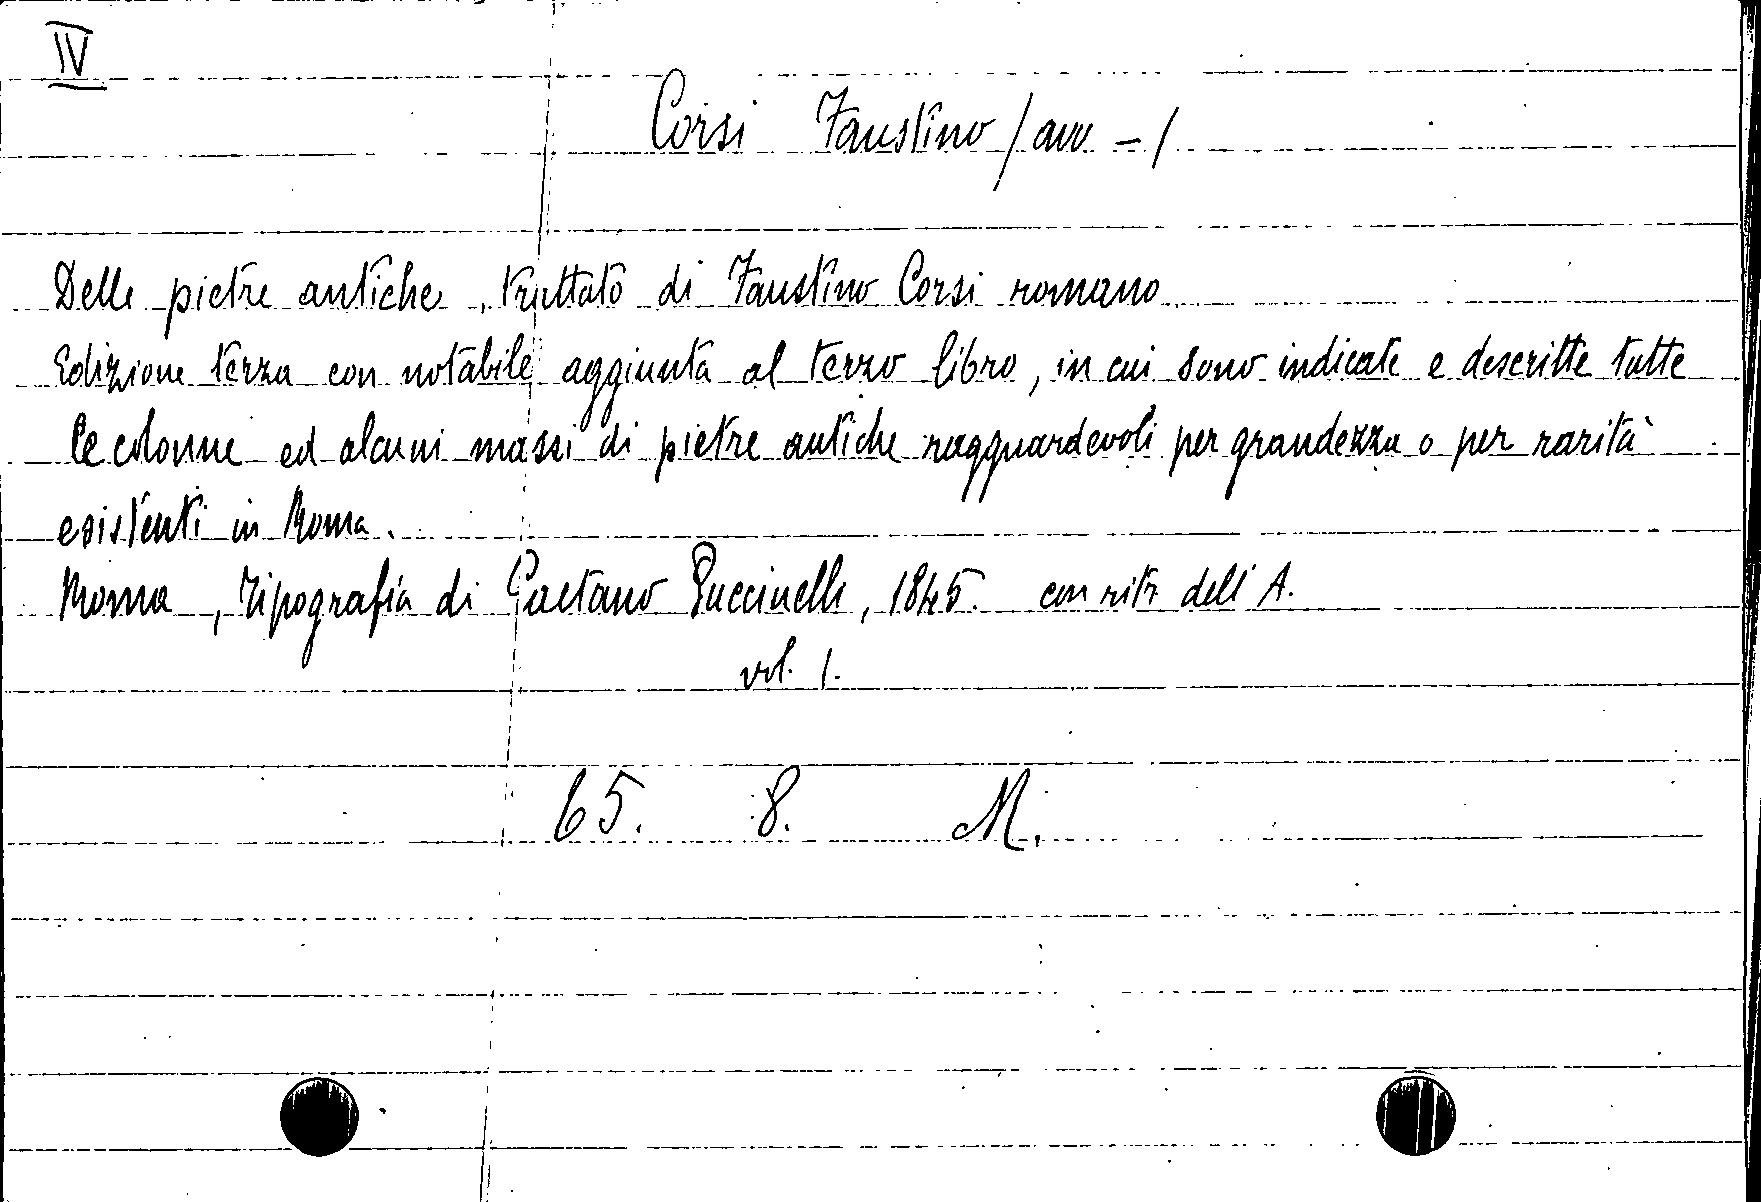 IV
Corsi Faustino / avv - /
Delle pietre antiche, trattato di Faustino Corsi romano
Edizione terza con notabile aggiunta al terzo libro, in cui sono indicate e descritte tutte
le colonne ed alcuni massi di pietre antiche ragguardevoli per grandezza o per rarità
esistenti in Roma.
Roma, Tipografia di Gaetano Puccinelli, 1845. con ritr dell'A.
vol. 1.
65. 8. M.